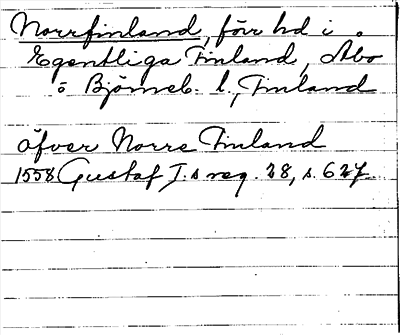 Norrfinland, förr hd i
Egentliga Finland, Åbo
o Björneb. l., Finland
öfver Norre Finland
1558 Gustaf I.s reg. 28, s. 627